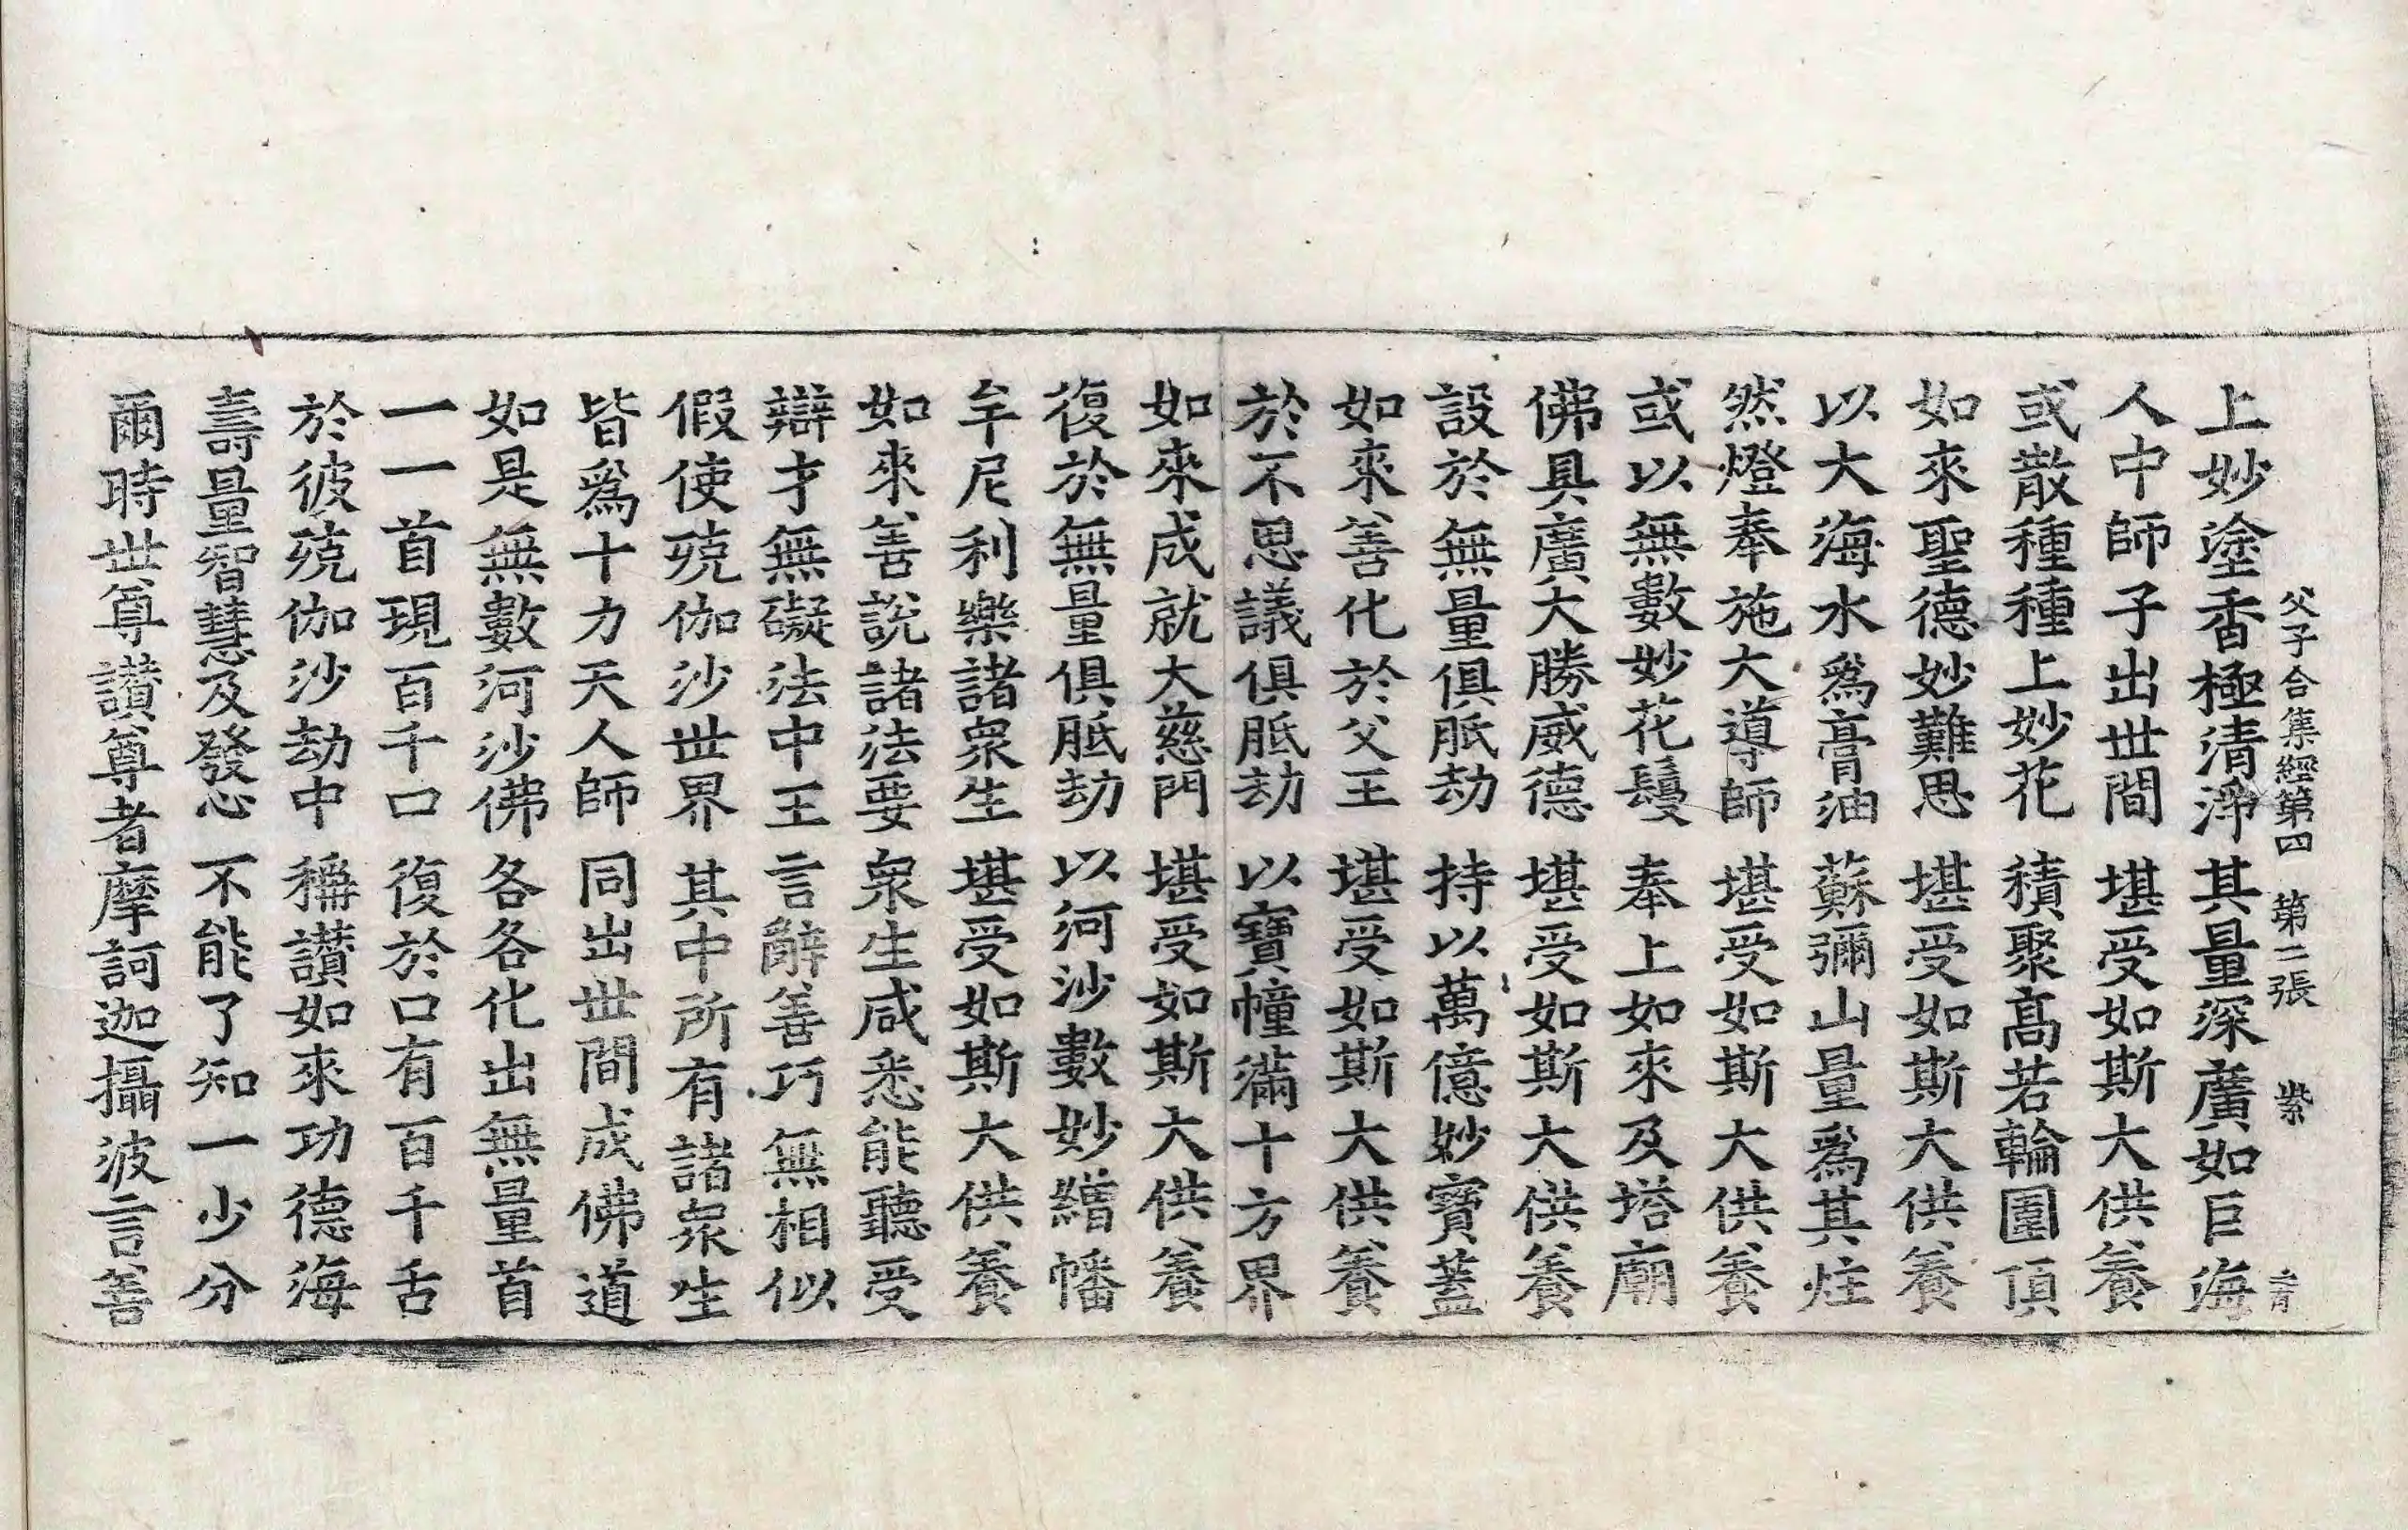 父子合集經第四 第二張 紫
上妙塗香極清淨 其量深廣如巨海
人中師子出世間 堪受如斯大供養
或散種種上妙花 積聚高若輪圍頂
如來聖德妙難思 堪受如斯大供養
以大海水爲膏油 蘇彌山量爲其炷
然燈奉施大導師 堪受如斯大供養
或以無數妙花鬘 奉上如來及塔廟
佛具廣大勝威德 堪受如斯大供養
設於無量俱胝劫 持以萬億妙寶蓋
如來善化於父王 堪受如斯大供養
於不思議俱胝劫 以寶幢滿十方界
如來成就大慈門 堪受如斯大供養
復於無量俱胝劫 以河沙數妙繒幡
牟尼利樂諸衆生 堪受如斯大供養
如來善說諸法要 衆生咸悉能聽受
辯才無礙法中王 言辭善巧無相似
假使殑伽沙世界 其中所有諸衆生
皆爲十力天人師 同出世間成佛道
如是無數河沙佛 各各化出無量首
一一首現百千口 復於口有百千舌
於彼殑伽沙劫中 稱讚如來功德海
壽量智慧及發心 不能了知一少分
爾時世尊讚尊者摩訶迦攝波言善